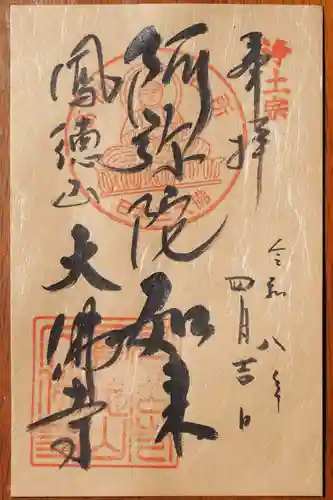 浄土宗
奉拝
令和八年
四月吉日
阿弥陀如来
鳳徳山
大佛寺